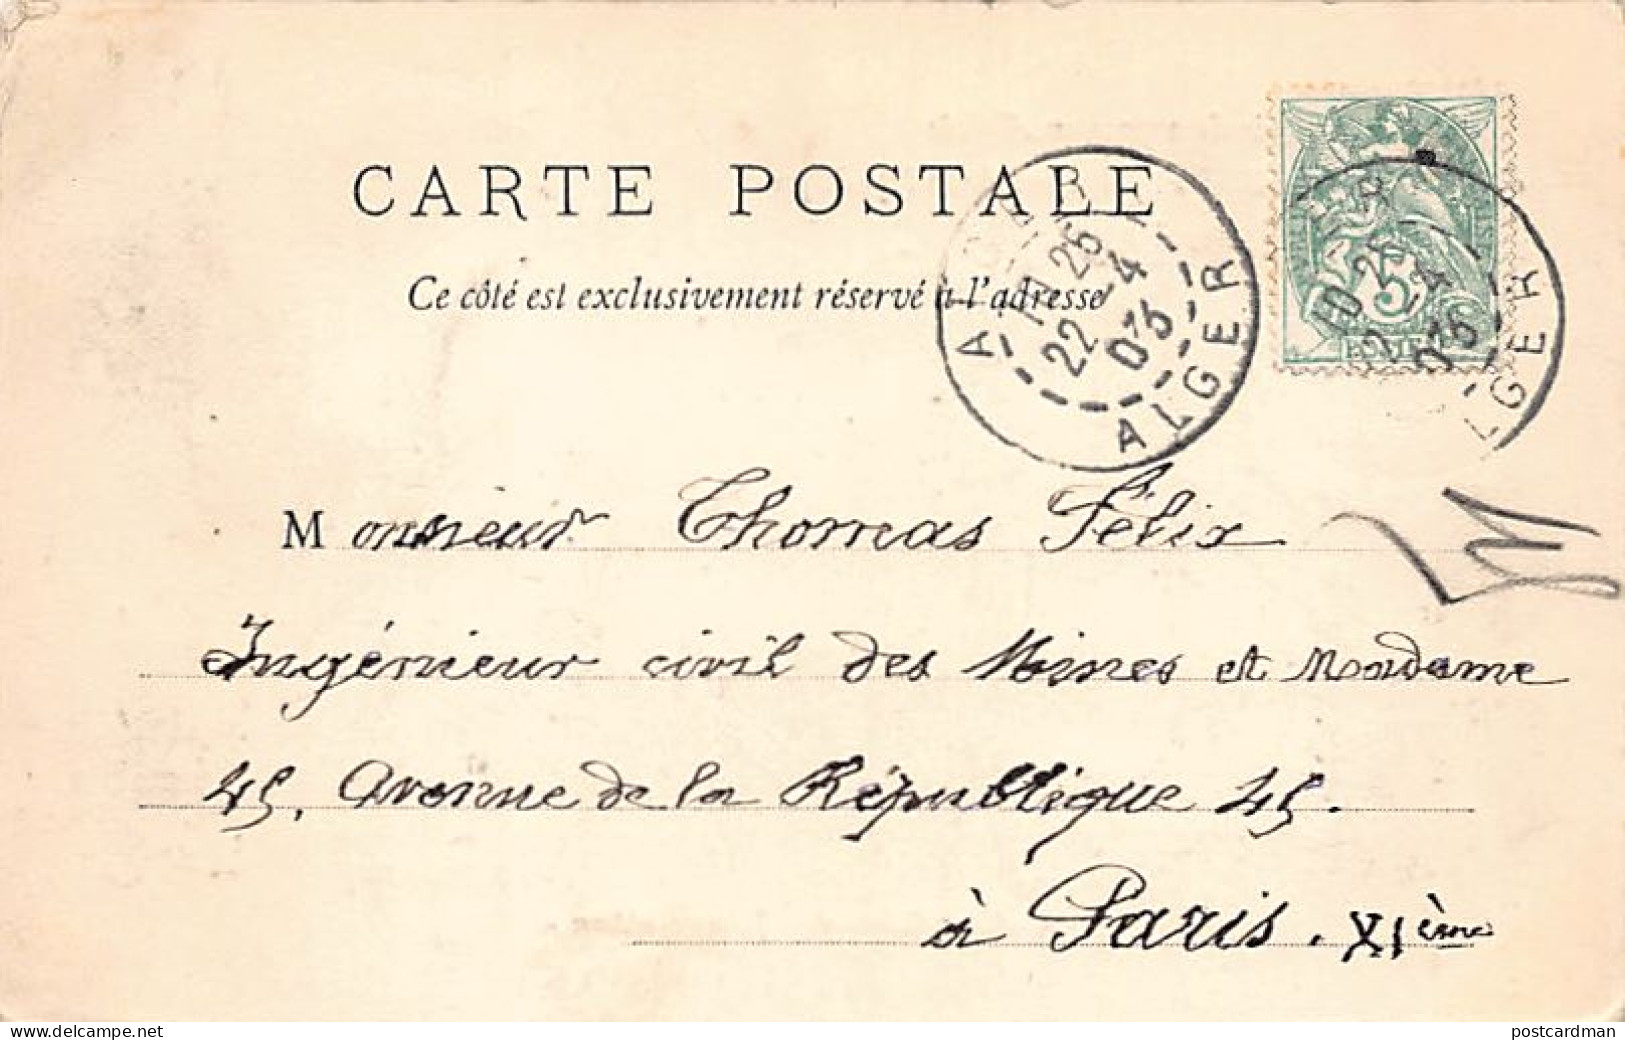 CARTE POSTALE
Ce côté est exclusivement réservé à l'adresse
ALGER
19 26
22 - 4
03
ALGER
5
22 - 4
03
ALGER
Monsieur Thomas Félix
Ingénieur civil des Mines et Madame
45, Avenue de la République 45.
à Paris. XIème
www.delcampe.net
postcardman